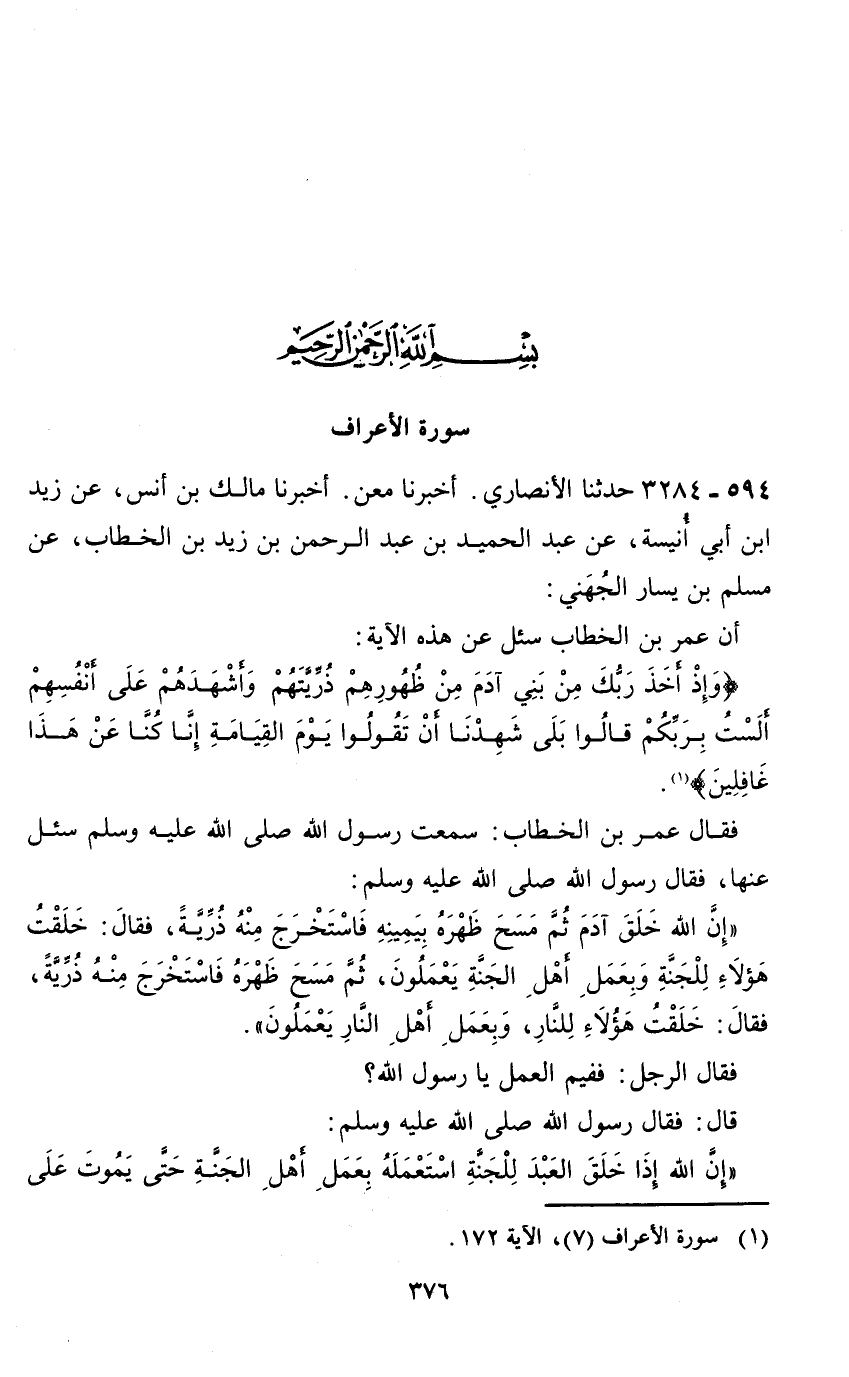 بِسْمِ ٱللَّهِ ٱلرَّحْمَٰنِ ٱلرَّحِيمِ
سورة الأعراف
٥٩٤ ـ ٣٢٨٤ حدثنا الأنصاري. أخبرنا معن. أخبرنا مالك بن أنس، عن زيد
ابن أبي أُنيسة، عن عبد الحميد بن عبد الرحمن بن زيد بن الخطاب، عن
مسلم بن يسار الجُهَني:
أن عمر بن الخطاب سئل عن هذه الآية:
﴿وَإِذْ أَخَذَ رَبُّكَ مِنْ بَنِي آدَمَ مِنْ ظُهُورِهِمْ ذُرِّيَّتَهُمْ وَأَشْهَدَهُمْ عَلَى أَنْفُسِهِمْ
أَلَسْتُ بِرَبِّكُمْ قالُوا بَلَى شَهِدْنَا أَنْ تَقُولُوا يَوْمَ القِيَامَةِ إِنَّا كُنَّا عَنْ هَذَا
غَافِلِينَ﴾(١).
فقال عمر بن الخطاب: سمعت رسول الله صلى الله عليه وسلم سئل
عنها، فقال رسول الله صلى الله عليه وسلم:
«إِنَّ الله خَلَقَ آدَمَ ثُمَّ مَسَحَ ظَهْرَهُ بِيَمِينِهِ فَاسْتَخْرَجَ مِنْهُ ذُرِّيَّةً، فقالَ: خَلَقْتُ
هَؤلَاءِ لِلْجَنَّةِ وَبِعَمَلِ أَهْلِ الجَنَّةِ يَعْمَلُونَ، ثُمَّ مَسَحَ ظَهْرَهُ فَاسْتَخْرَجَ مِنْهُ ذُرِّيَّةً،
فقالَ: خَلَقْتُ هَؤُلَاءِ لِلنَّارِ، وَبِعَمَلِ أَهْلِ النَّارِ يَعْمَلُونَ».
فقال الرجل: ففيم العمل يا رسول الله؟
قال: فقال رسول الله صلى الله عليه وسلم:
«إِنَّ الله إِذَا خَلَقَ العَبْدَ لِلْجَنَّةِ اسْتَعْمَلَهُ بِعَمَلِ أَهْلِ الجَنَّةِ حَتَّى يَمُوتَ عَلَى
(١) سورة الأعراف (٧)، الآية ١٧٢.
٣٧٦